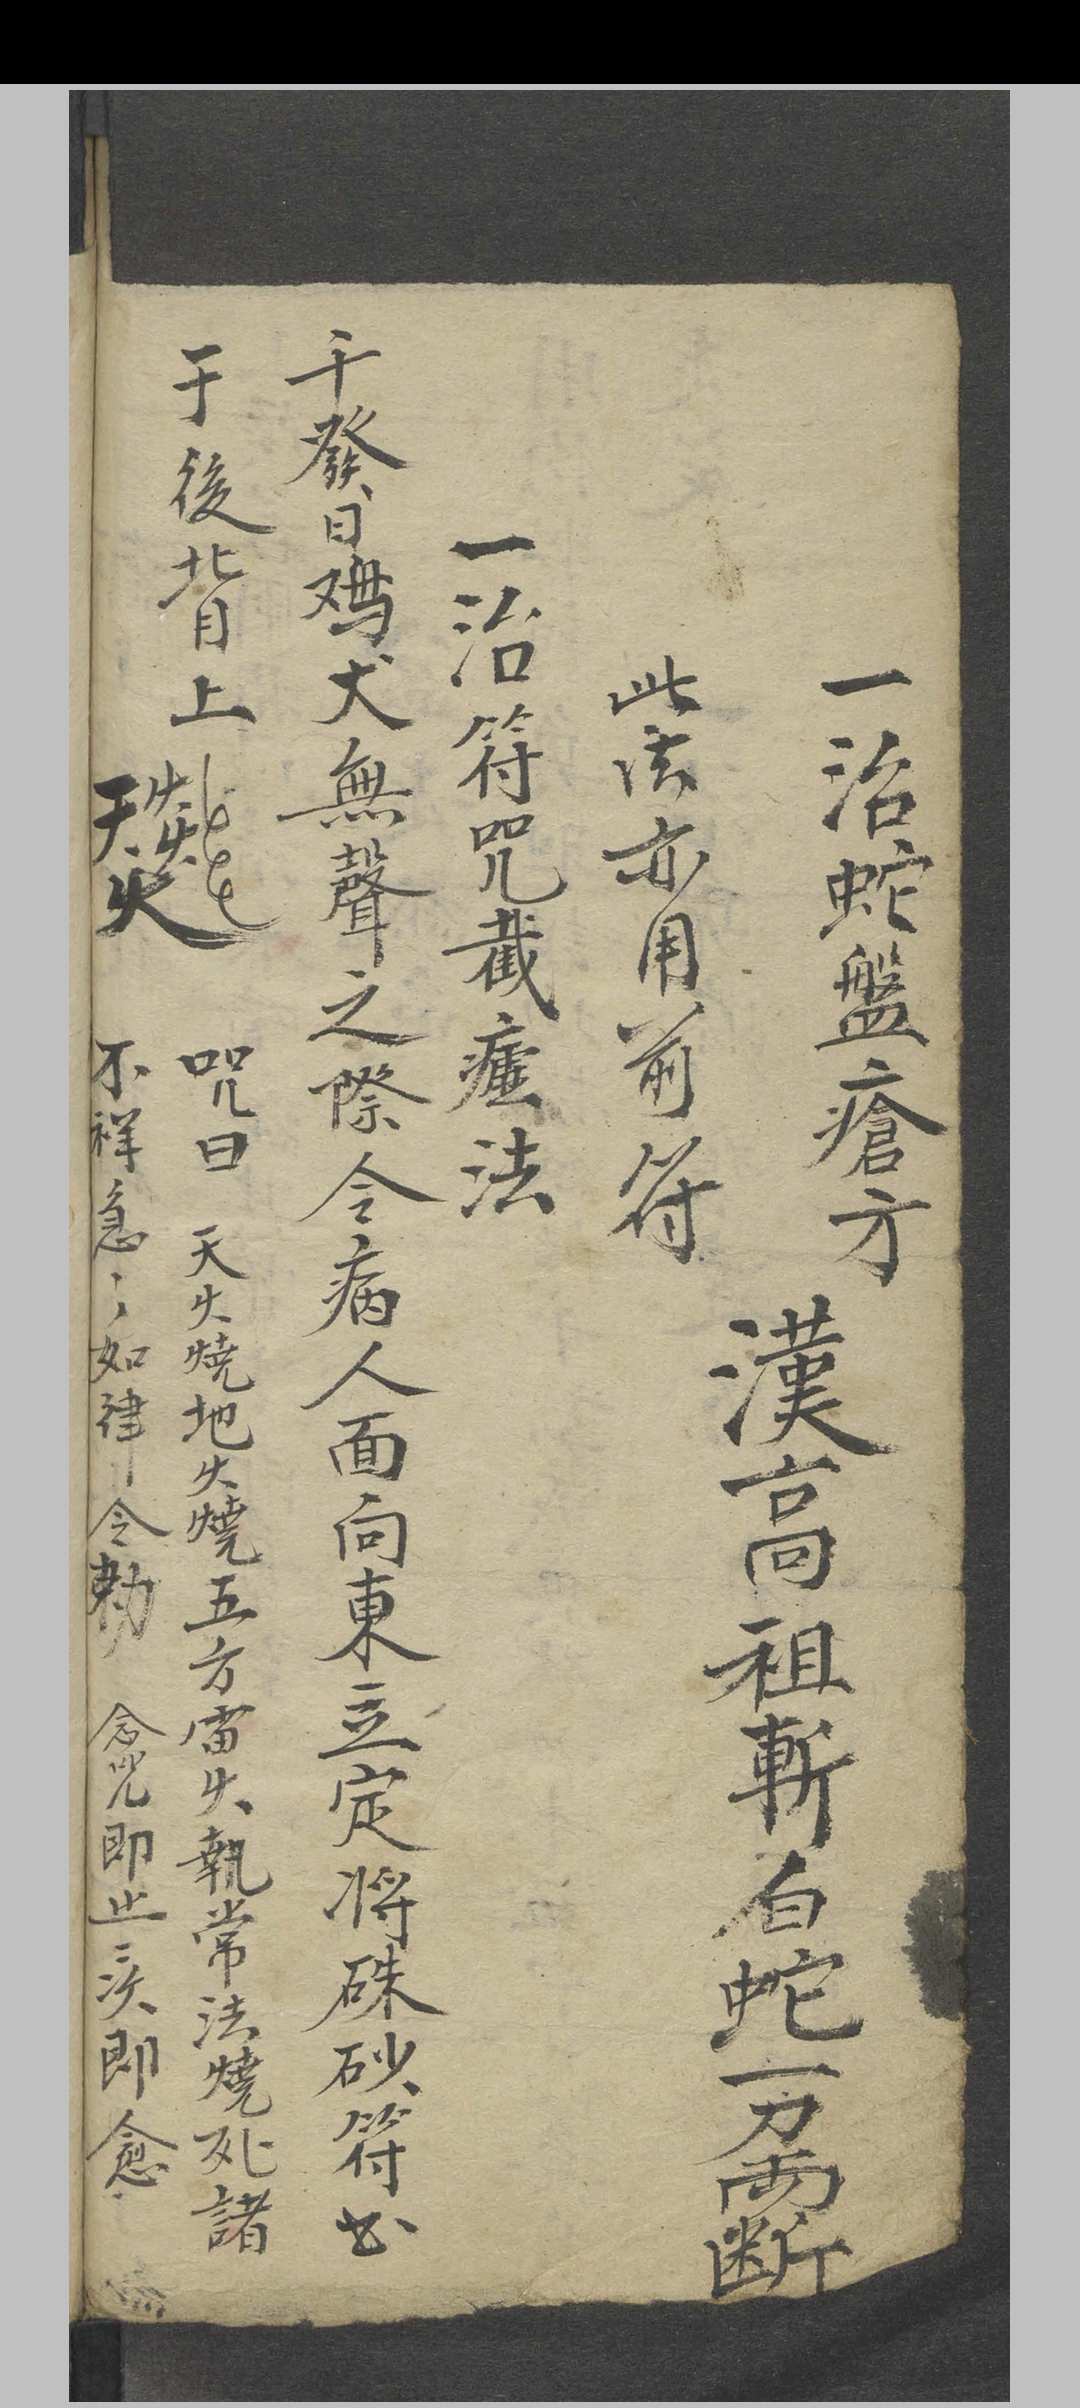 一治蛇盤瘡方
漢高祖斬白蛇一刀両断
此法亦用前符
一治符咒截瘧法
于發日鸡犬無聲之際令病人面向東立定將硃砂符书
于後背上
咒曰 天火燒地火燒五方雷火執常法燒死諸
不祥急〻如律令勅 念咒即止 即愈